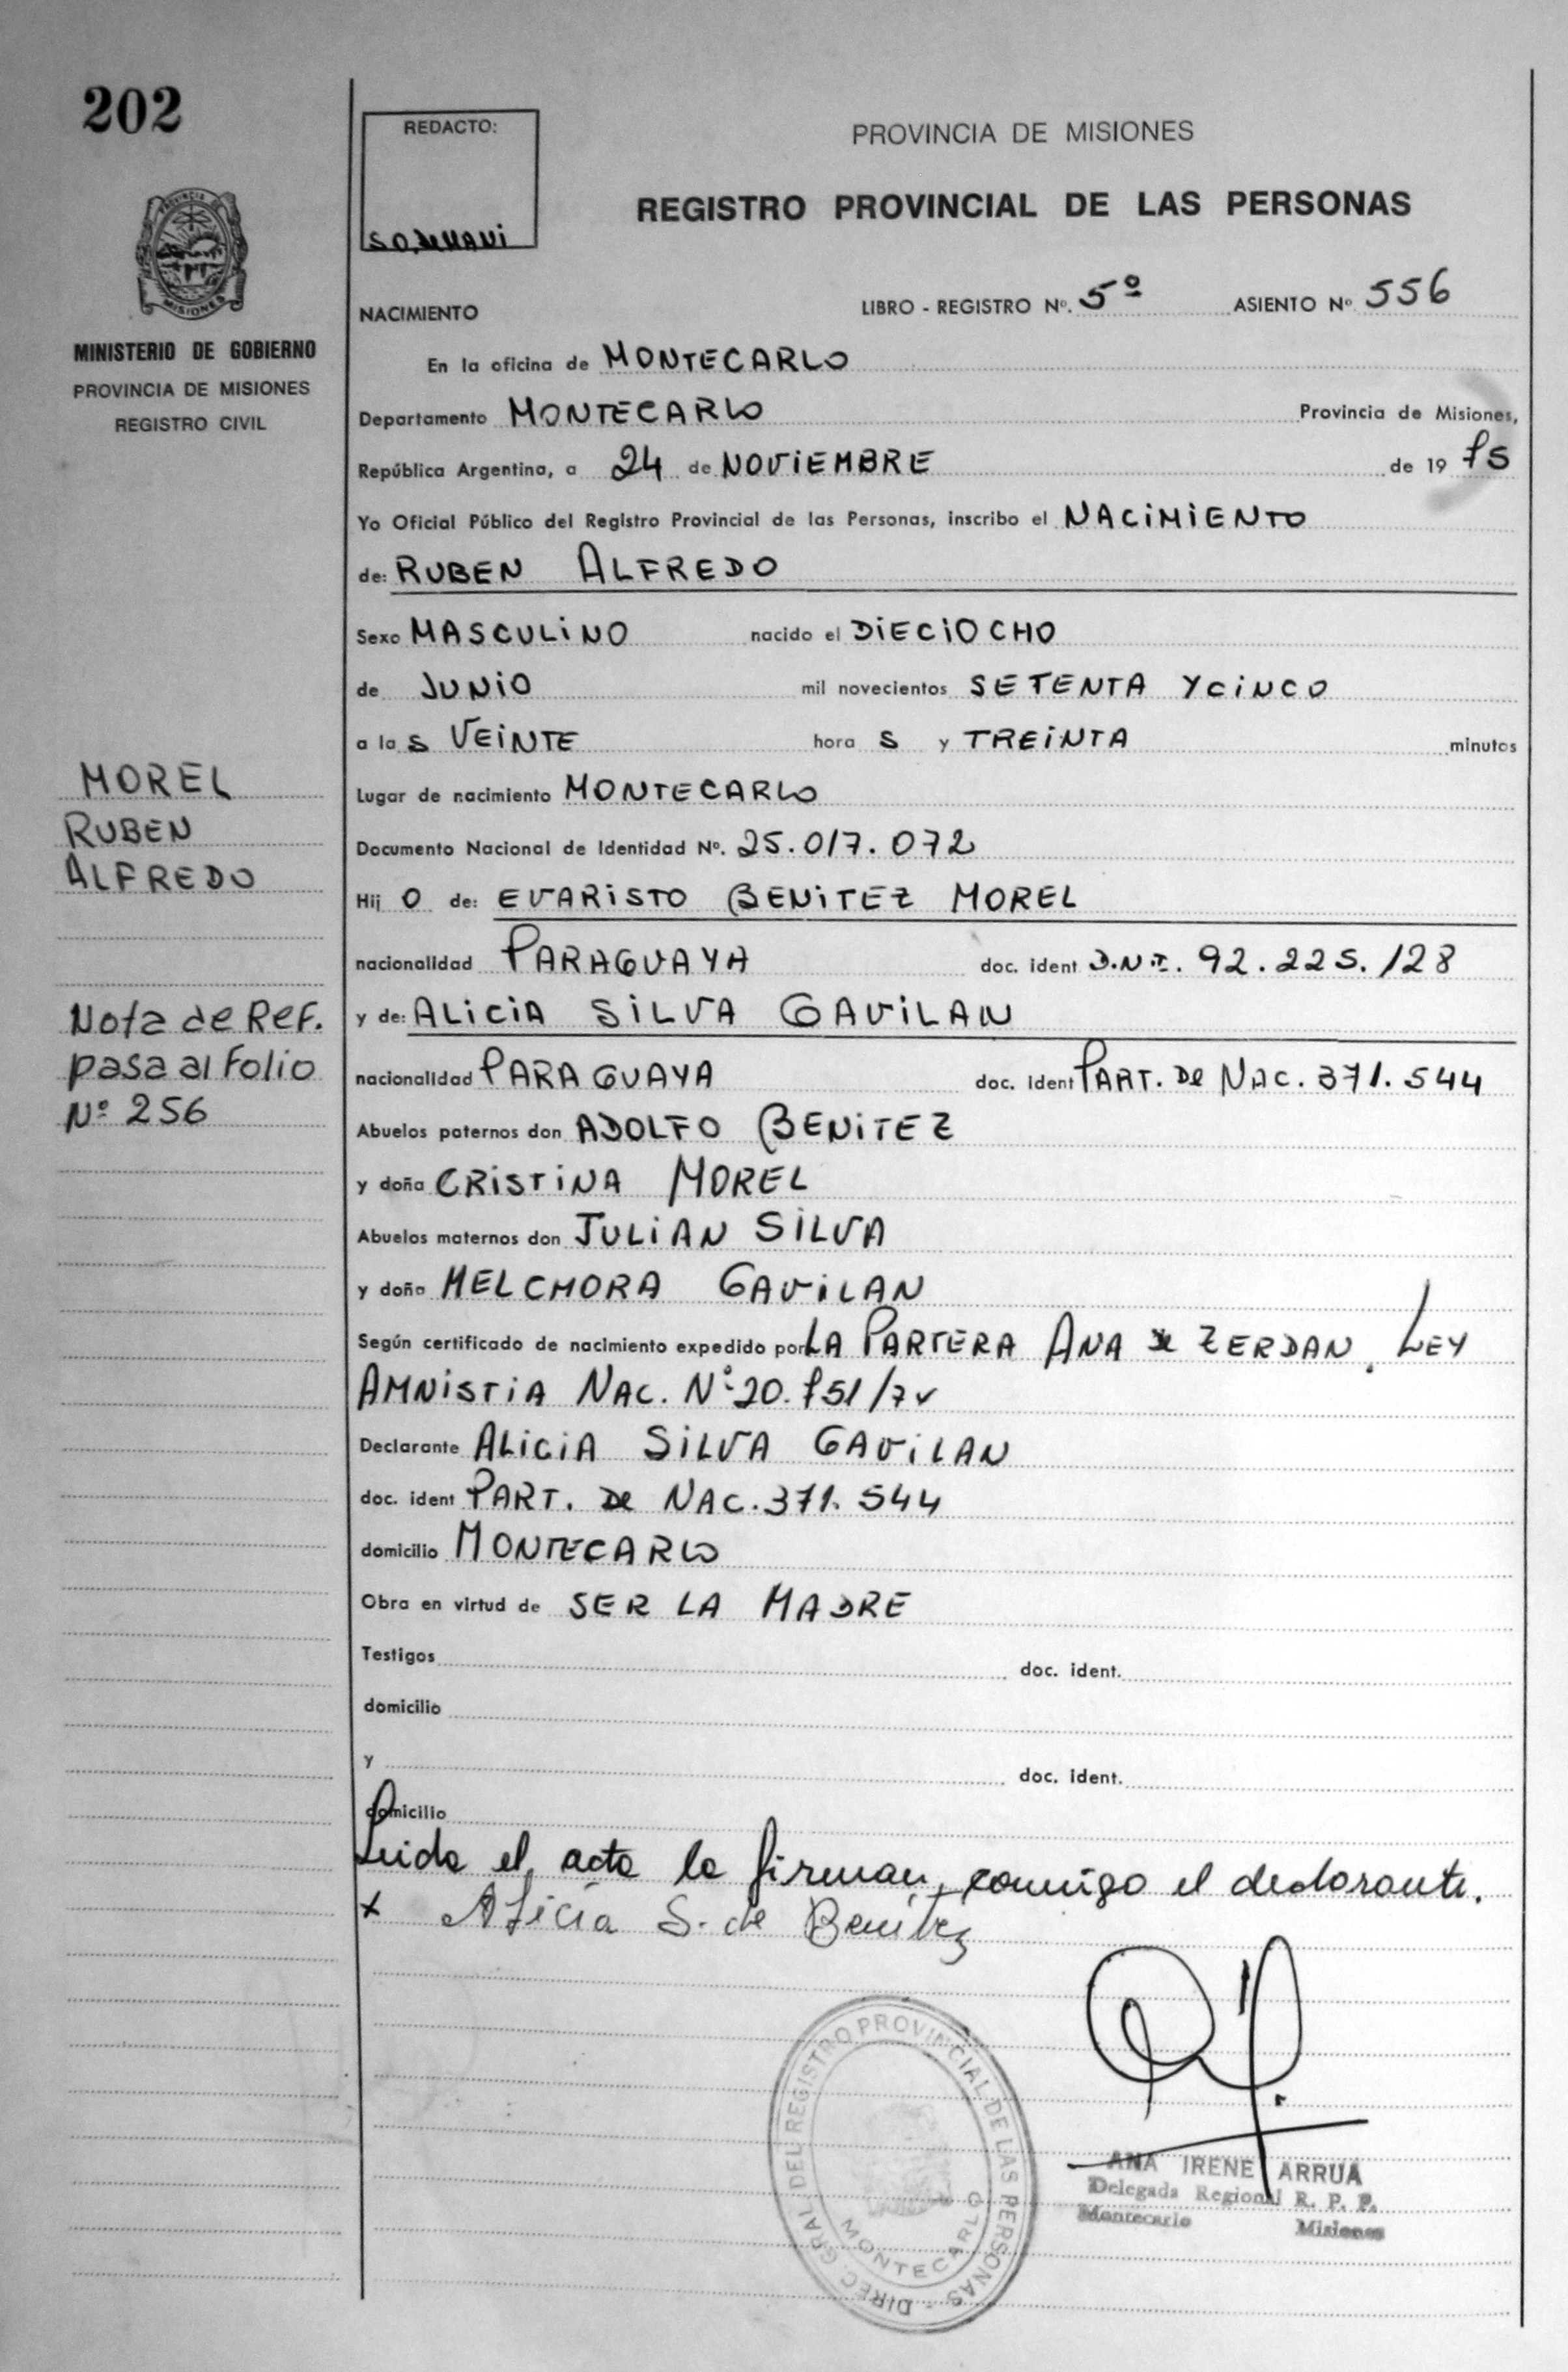 202
PROVINCIA DE MISIONES
MINISTERIO DE GOBIERNO
PROVINCIA DE MISIONES
REGISTRO CIVIL
MOREL
RUBEN
ALFREDO
Nota de Ref.
pasa al Folio
Nº 256
REDACTO:
PROVINCIA DE MISIONES
REGISTRO PROVINCIAL DE LAS PERSONAS
NACIMIENTO LIBRO - REGISTRO Nº. 5º ASIENTO Nº 556
En la oficina de MONTECARLO
Departamento MONTECARLO Provincia de Misiones,
República Argentina, a 24 de NOVIEMBRE de 19 75
Yo Oficial Público del Registro Provincial de las Personas, inscribo el NACIMIENTO
de: RUBEN ALFREDO
Sexo MASCULINO nacido el DIECIOCHO
de JUNIO mil novecientos SETENTA Y CINCO
a las VEINTE horas y TREINTA minutos
Lugar de nacimiento MONTECARLO
Documento Nacional de Identidad Nº. 25.017.072
Hijo de: EVARISTO BENITEZ MOREL
nacionalidad PARAGUAYA doc. ident D.N.I. 92.225.128
y de: ALICIA SILVA GAVILAN
nacionalidad PARAGUAYA doc. ident PART. De NAC. 371.544
Abuelos paternos don ADOLFO BENITEZ
y doña CRISTINA MOREL
Abuelos maternos don JULIAN SILVA
y doña MELCHORA GAVILAN
Según certificado de nacimiento expedido por LA PARTERA ANA de ZERDAN. LEY
AMNISTIA NAC. Nº 20.751/74
Declarante ALICIA SILVA GAVILAN
doc. ident PART. De NAC. 371.544
domicilio MONTECARLO
Obra en virtud de SER LA MADRE
Testigos doc. ident.
domicilio
y doc. ident.
domicilio
Leida el acta la firman, conmigo el declarante.
x Alicia S. de Benitez
DIREC. GRAL DEL REGISTRO PROVINCIAL DE LAS PERSONAS -
MONTECARLO
ANA IRENE ARRUA
Delegada Regional R. P. P.
Montecarlo Misiones